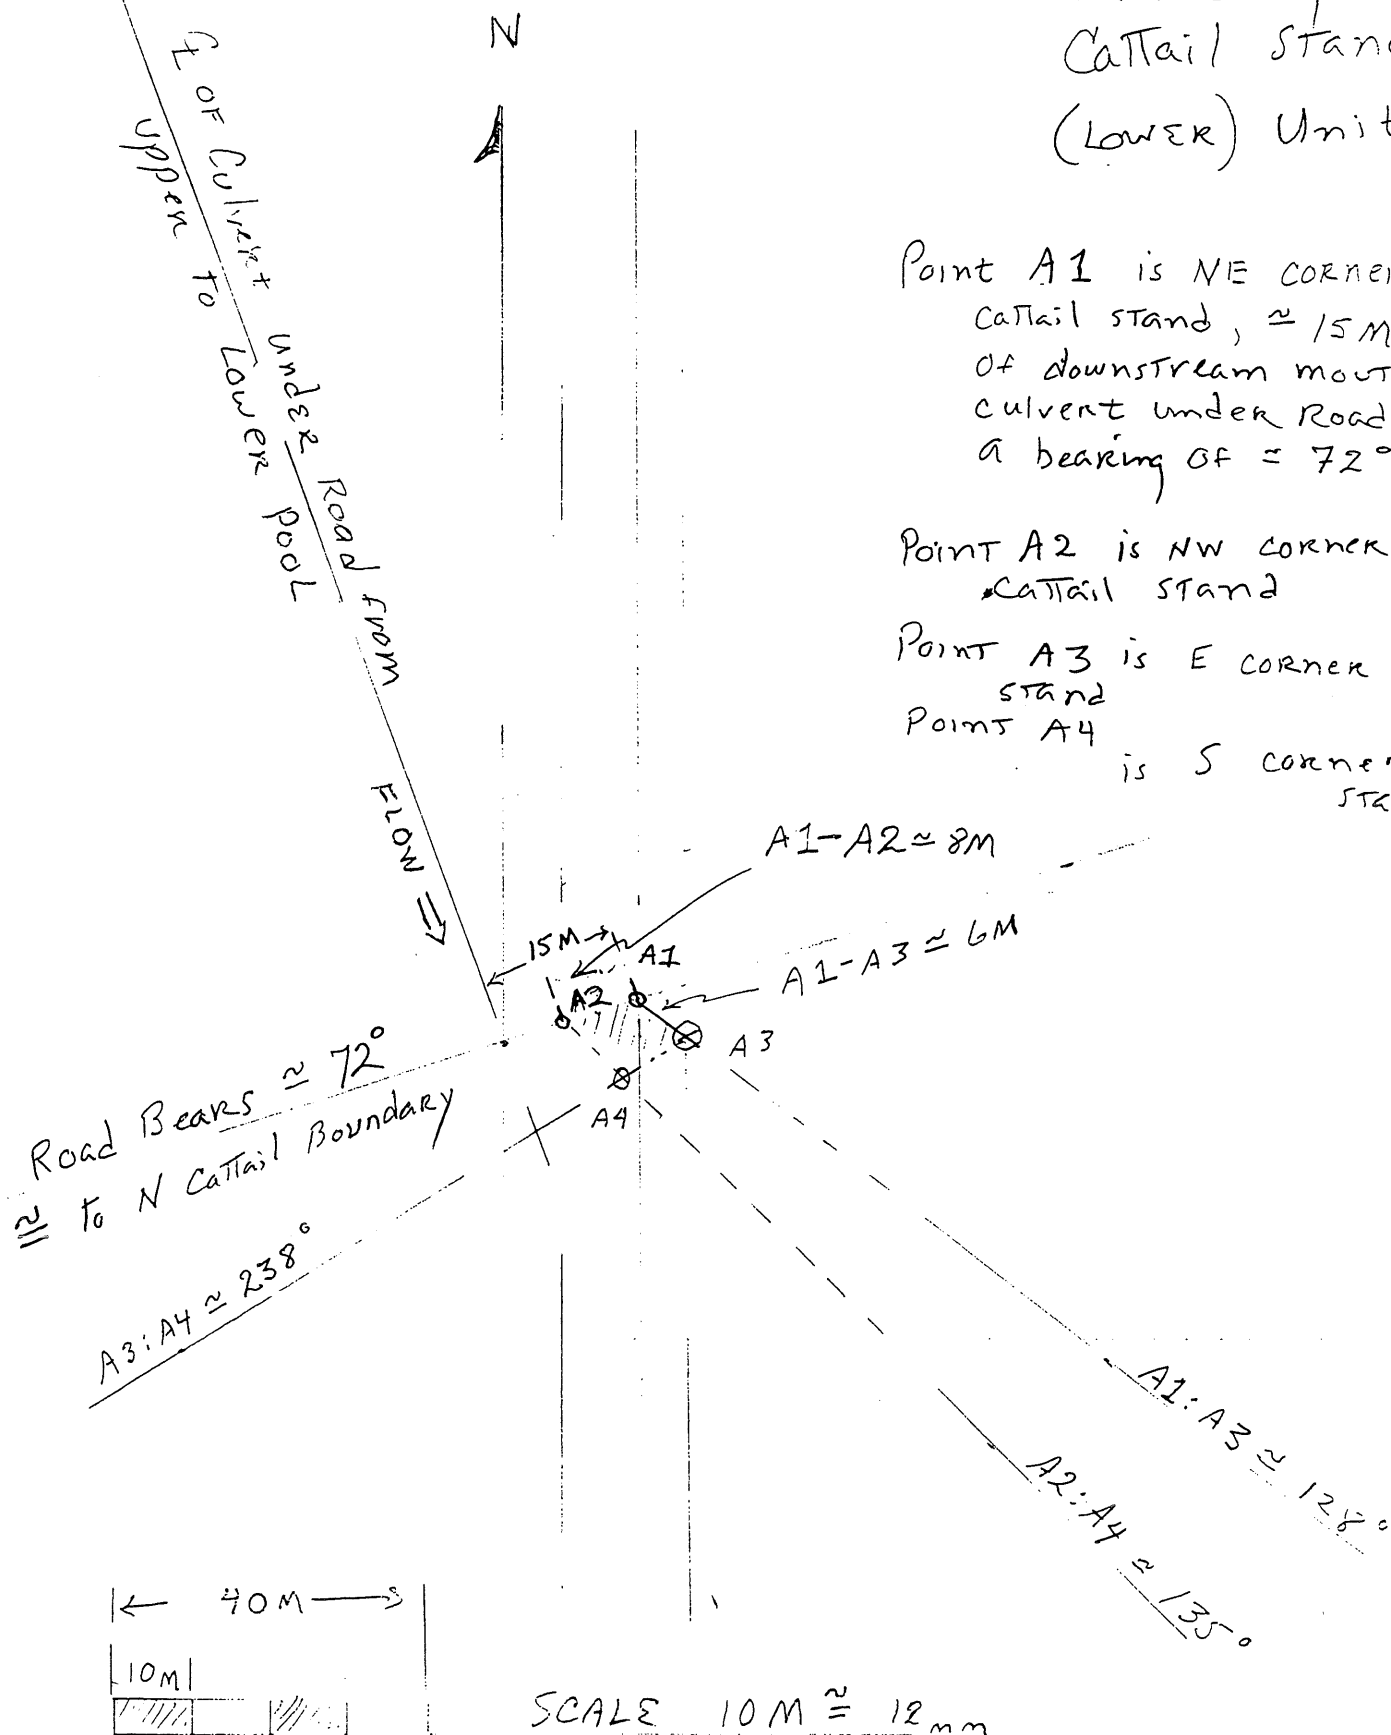 N
CaTTail STan
(LOWER) Unit
℄ OF Culvert under Road from
upper to Lower Pool
Point A1 is NE CORNER
CaTTail STand, ≃ 15M
Of downstream mouT
culvert under Road
a bearing Of = 72°
Point A2 is NW CORNER
CaTTail STand
Point A3 is E CORNER
STand
Point A4
is S corner
STa
FLOW
A1-A2 ≃ 8M
15M
A1
A2
A1-A3 ≃ 6M
A3
A4
Road Bears ≃ 72°
≅ To N CaTTail Boundary
A3:A4 ≃ 238°
A1:A3 ≃ 128°
A2:A4 ≃ 135°
40M
10M
SCALE 10M ≅ 12mm